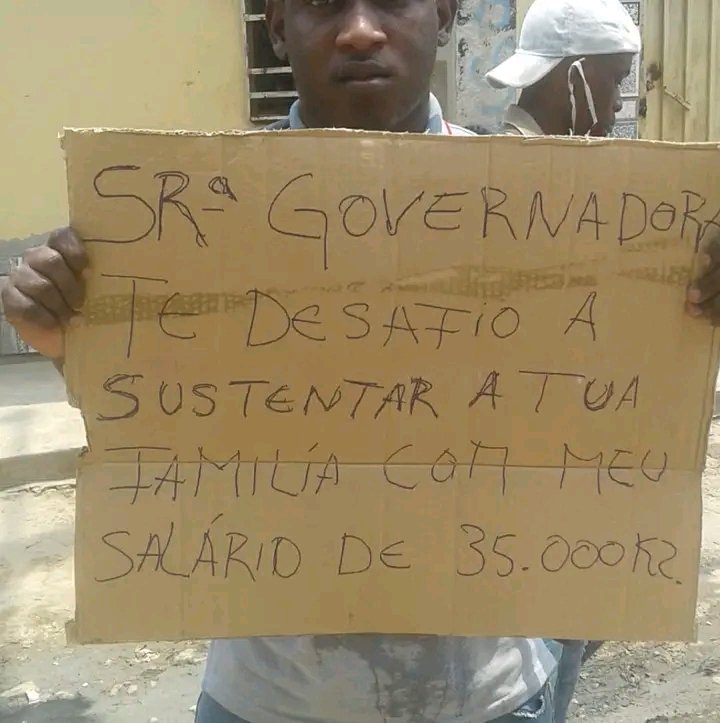 SR.ª GOVERNADORA
TE DESAFIO A
SUSTENTAR A TUA
FAMILÍA COM MEU
SALÁRIO DE 35.000KZ.